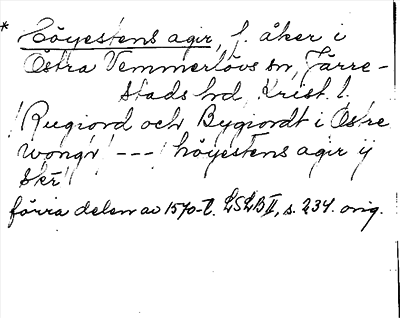 * Höyestens agir, f. åker i
Östra Vemmerlövs sn, Järre-
stads hd, Krist. l.
/Rugiord och Bygiordt i Östre
wongr/ --- /höyestens agir ij
Skr/
förra delen av 1570-t. LSLB II, s. 234. orig.